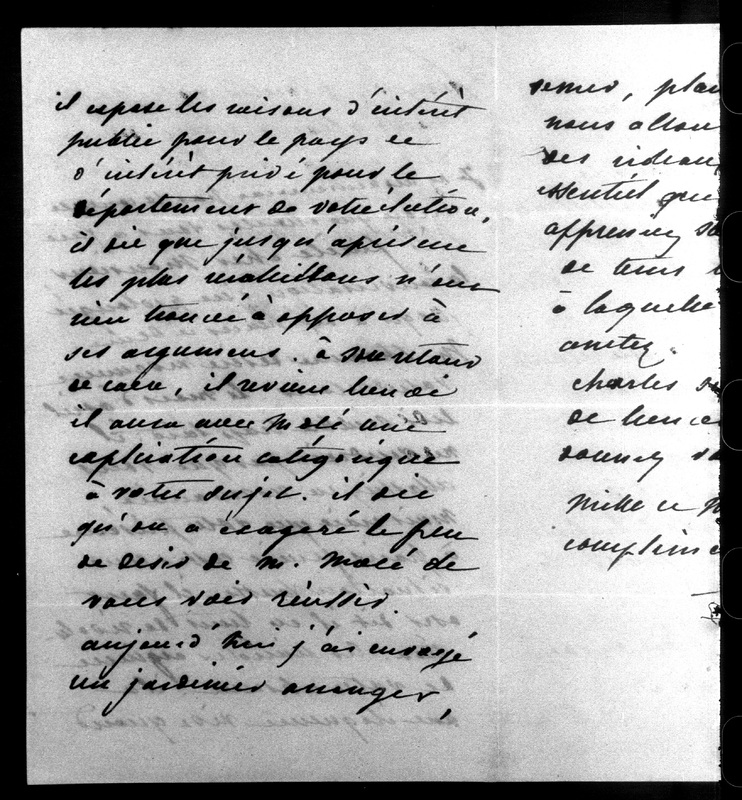 il expose les raisons d'intérêt
public pour le pays et
d'intérêt privé pour le
département de votre élection,
il dit que jusqu'à présent
les plus récalcitrans n'ont
rien trouvé à opposer à
ses argumens. à son retour
de caen, il revient lundi
il aura avec Molé une
explication catégorique
à votre sujet. il dit
qu'on a exagéré le peu
de desir de m. Molé de
vous voir réussir.
aujourd'hui j'ai envoyé
un jardinier arranger,
semer, plan
nous allon
des rideau
essentiel que
apprenez
de tems
à laquelle
arrivez.
charles
de lui
donnez
mille
complim